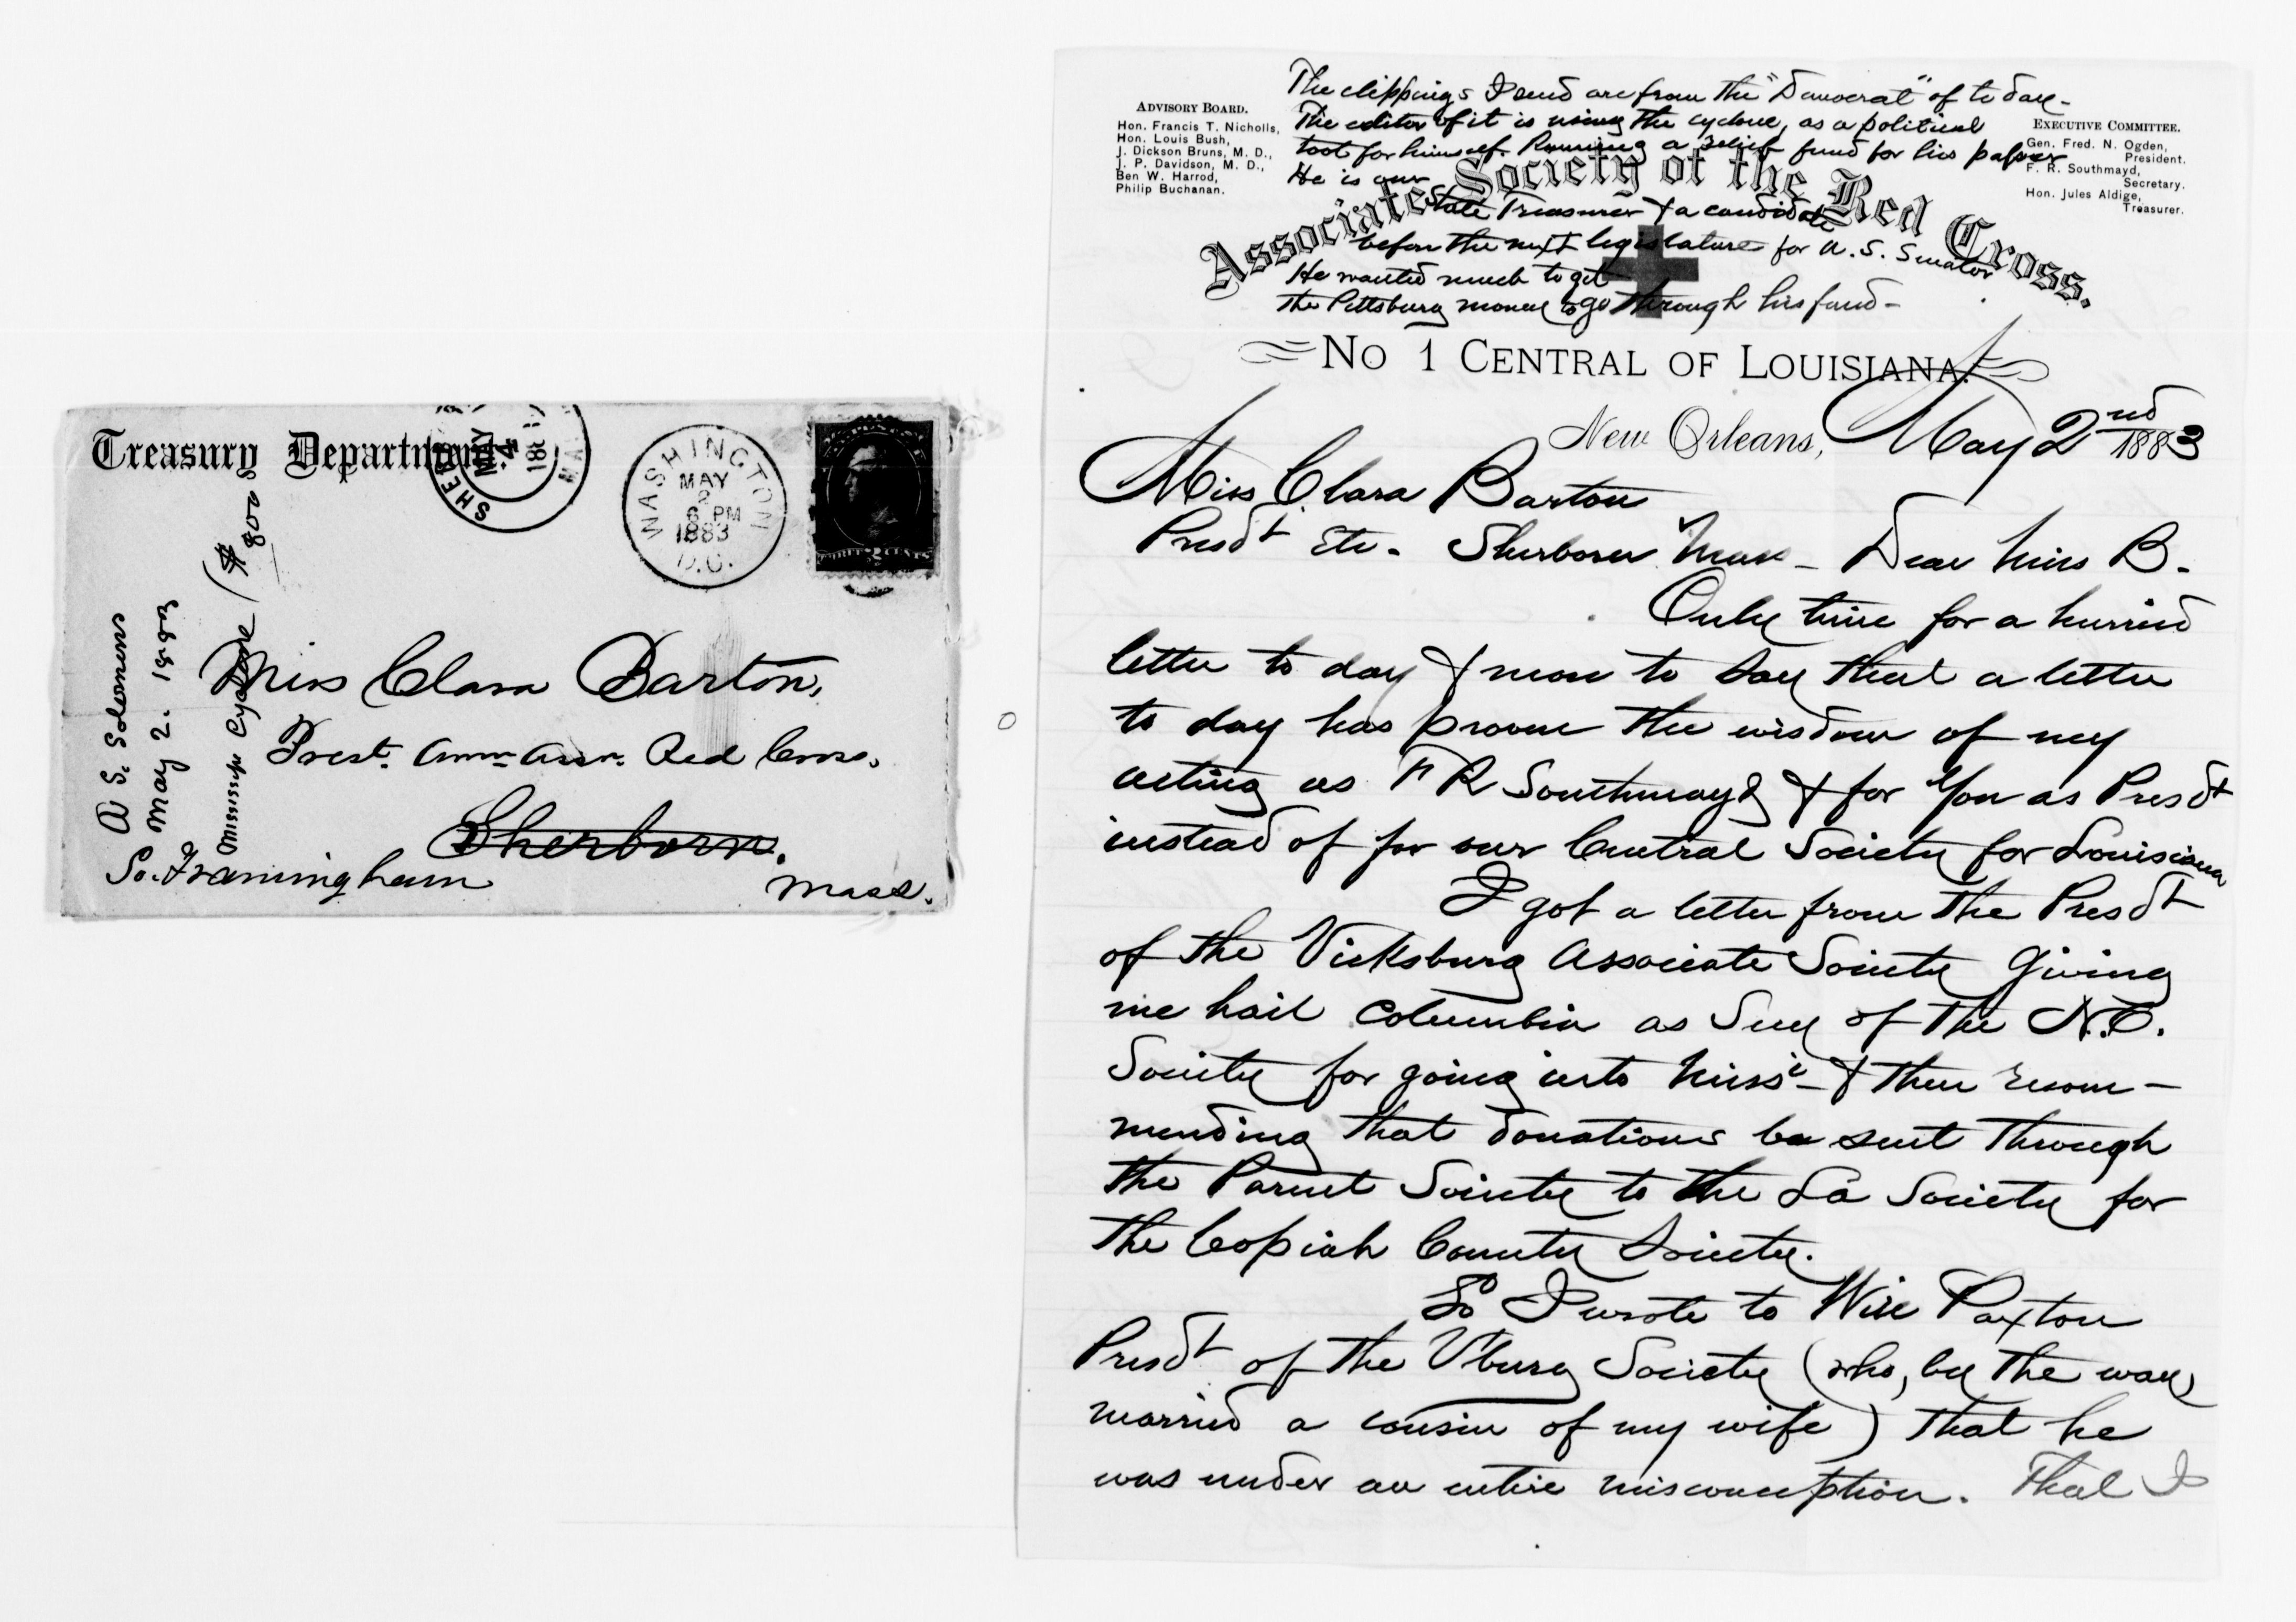 Treasury Department
SHER
MAY
4
188
MA
WASHINGTON
MAY
2
6 PM
1883
D.C.
A S. Solomons
May 2. 1883
Mississippi Cyclone ($800
Miss Clara Barton,
Prest. Amn. Assn. Red Cross.
Sherborn.
So. Framingham
Mass.
The clippings I send are from the "Democrat" of to day-
The editor of it is using the cyclone, as a political
toot for himself. Running a relief fund for his paper
He is our
State Treasurer & a candidate
before the next legislature for U. S. Senator
He wanted much to get
the Pittsburg money to go through his fund-
ADVISORY BOARD.
Hon. Francis T. Nicholls,
Hon. Louis Bush,
J. Dickson Bruns, M. D.,
J. P. Davidson, M. D.,
Ben W. Harrod,
Philip Buchanan.
EXECUTIVE COMMITTEE.
Gen. Fred. N. Ogden,
President.
F. R. Southmayd,
Secretary.
Hon. Jules Aldige,
Treasurer.
Associate Society of the Red Cross.
No 1 CENTRAL OF LOUISIANA.
New Orleans, May 2nd 1883
Miss Clara Barton
Presdt Etc. Sherborn Mass - Dear Miss B.
Only time for a hurried
letter to day & now to say that a letter
to day has proven the wisdom of my
acting as F R Southmayd & for you as Presdt
instead of for our Central Society for Louisiana
I got a letter from the Presdt
of the Vicksburg Associate Society giving
me hail Columbia as Secy of the N.O.
Society for going into Missi - & then recom-
mending that donations be sent through
the Parent Society to the La Society for
the Copiah County Society.
So I wrote to Wise Paxton
Presdt of the Vburg Society (who, by the way,
married a cousin of my wife) that he
was under an entire misconception. That I